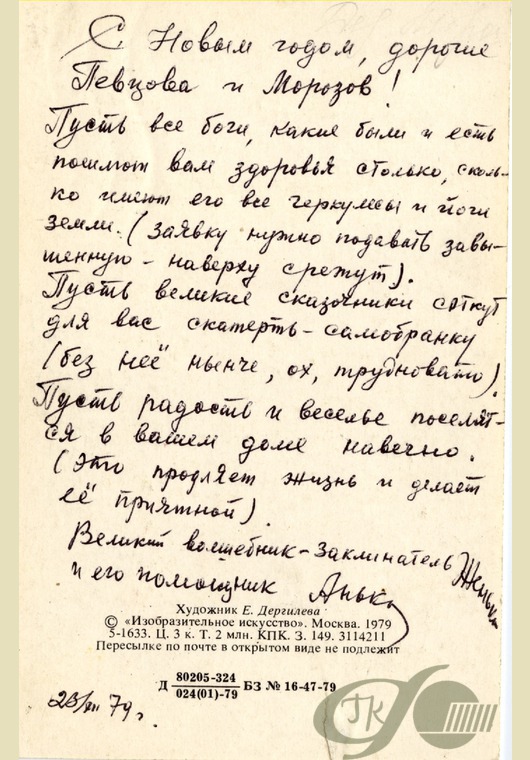 С Новым годом, дорогие
Певцова и Морозов!
Пусть все боги, какие были и есть
пошлют вам здоровья столько, сколь-
ко имеют его все геркулесы и йоги
земли. (Заявку нужно подавать завы-
шенную - наверху срежут).
Пусть великие сказочники соткут
для вас скатерть-самобранку
(без неё нынче, ох, трудновато).
Пусть радость и веселье поселят-
ся в вашем доме навечно.
(Это продляет жизнь и делает
её приятной)
Великий волшебник-заклинатель
и его помощник Анька
Художник Е. Дергилева
© «Изобразительное искусство». Москва. 1979
5-1633. Ц. 3 к. Т. 2 млн. КПК. З. 149. 3114211
Пересылке по почте в открытом виде не подлежит
Д 80205-324 БЗ № 16-47-79
024(01)-79
79 г.
ГК